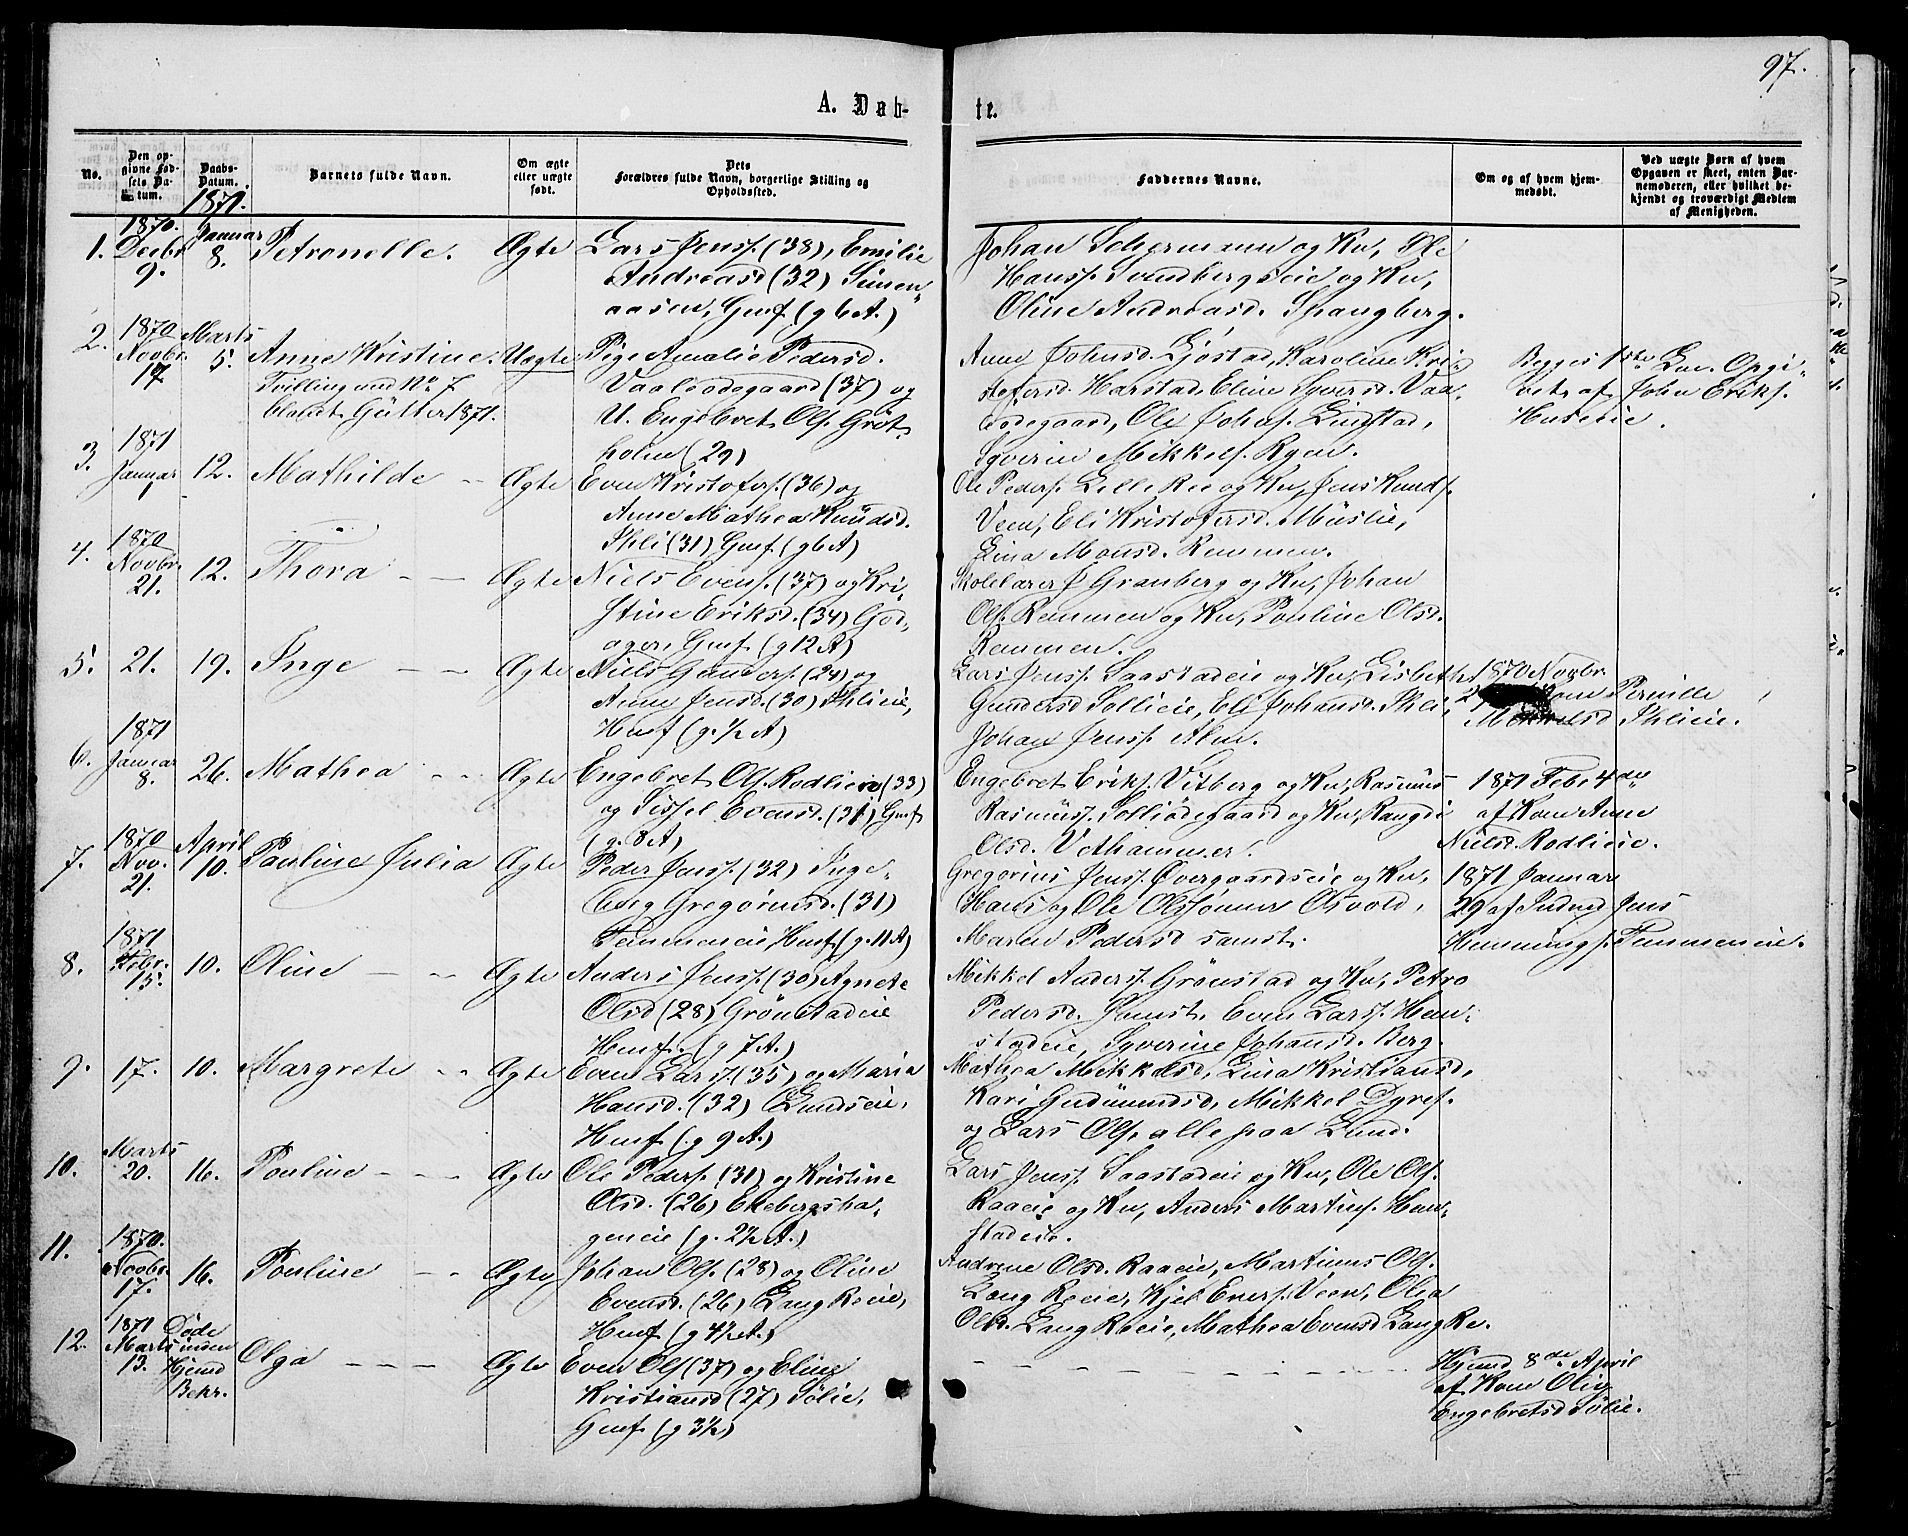 97.
A. Døb-
te.
No.
Den op-
givne Fød-
sels Da-
tum.
Daabs-
Datum.
1871.
Barnets fulde Navn.
Om ægte
eller uægte
født.
Dets
Forældres fulde Navn, borgerlige Stilling og
Opholdssted.
Faddernes Navne.
Om og af hvem hjem-
medøbt.
Ved uægte Børn af hvem
Opgaven er skeet, enten Bar-
nemoderen, eller hvilket be-
kjendt og troværdigt Medlem
af Menigheden.
1. 1870. Decbr 9. Januar 8. Petronelle. Ægte
Lars Jensf. (38), Emilie
Andreasd (32) Simen-
aasen, Gmf. (g 6 A.)
Johan Schermann og Kv, Ole
Hansf. Svendbergseie og Kv,
Oline Andreasd. Spangberg.
2. 1870 Novbr. 17 Marts 5. Anne Kristine. Uægte
Tvilling med No 7
blandt Gutter 1871.
Pige Amalie Pedersd.
Vaaleødegaard (37) og
U. Engebret Olsf. Grøt-
holen (29)
Anne Johnsd. Gjøstad, Karoline Kri-
stofersd. Harstad, Eline Syversd. Vaa-
leødegaard, Ole Johnsf. Lindstad,
Syverin Mikkelsf. Ryen.
Begges 1ste Lm. Opgi-
vet af John Eriksf.
Huseeie.
3. 1871 Januar 1 12. Mathilde Ægte
Even Kristofersf. (36) og
Anne Mathea Knudsd.
Ihli (31) Gmf. (g 6 A)
Ole Pedersf. Lille Ree og Kv, Jens Knudsf.
Veen, Eli Kristofersd. Muslie,
Lina Monsd. Remmen.
4. 1870 Novbr. 21. 12. Thora Ægte
Niels Evensf. (37) og Kri-
stine Eriksd. (34) God-
ager, Gmf. (g 12 A)
Skolelærer J Granberg og Kv, Johan
Olsf. Remmen og Kv, Pauline Olsd.
Remmen.
5. 21. 19. Inge Ægte
Niels Gundersf. (24) og
Anne Jensd. (30) Ihlieie,
Husf (g. ½ A)
Lars Jensf. Saastadeie og Kv, Lisbeth
Gundersd Sollieie, Eli Johansd. Ihli,
Johan Jensf. Alm.
1870 Novbr
Pernille
Ihlieie.
6. 1871 Januar 8. 26. Mathea Ægte
Engebret Olsf. Rodlieie (33)
og Sissel Evensd. (31) Gmf
(g. 8 A)
Engebret Eriksf. Vitberg og Kv, Rasmus
Rasmusf. Solliødegaard og Kv, Rangdi
Olsd. Vethammer.
1871 Febr 4de
af Kone Anne
Nielsd. Rodlieie.
7. 1870 Nov. 21. April 10. Pauline Julia Ægte
Peder Jensf. (32) Inge-
borg Gregoriusd. (31)
Temmeneie Husf. (g. 11 A)
Gregorius Jensf. Overgaardseie og Kv,
Hans og Ole Olssønner Osvold,
Maren Pedersd samst.
1871 Januar
29 af Indred Jens
Henningsf. Temmeneie.
8. 1871 Febr. 15. 10. Oline Ægte
Anders Jensf. (30) Agnete
Olsd (28) Grønstadeie
Husf. (g 7 A.)
Mikkel Andersf. Grønstad og Kv, Petro
Pedersd. samst. Even Larsf. Hem-
stadeie, Syverine Johansd. Berg.
9. 17. 10. Margrete Ægte
Even Larsf (35) og Maria
Hansd. (32) Lundseie,
Husf (g 9 A.)
Mathea Mikkelsd, Lina Kristiansd,
Kari Gudmundsd, Mikkel Dyref.
og Lars Olsf. alle paa Lund.
10. Marts 20. 16. Pauline Ægte
Ole Pedersf. (31) og Kristine
Olsd. (26) Ekebergsha-
geneie (g. 2½ A.)
Lars Jensf. Saastadeie og Kv, Ole Olsf.
Raaeie og Kv, Anders Martinsf. Hem-
stadeie.
11. 1870. Novbr. 17. 16. Pauline Ægte
Johan Olsf. (28) og Oline
Evensd. (26) Lang Reeie,
Husf (g 4½ A.)
Andrine Olsd. Raaeie, Martinus Olsf.
Lang Reeie, Kjel Enersf. Veen, Olea
Olsd. Lang Reeie, Mathea Evensd Lang Re.
12. 1871 Marts 13. Døde inden Kjend Bekr. Olga Ægte
Even Olsf (37) og Eline
Kristiansd (27) Solie,
Gmf. (g 3½)
Hjemd 8de April
af Kone Olig
Engebretsd Solie.